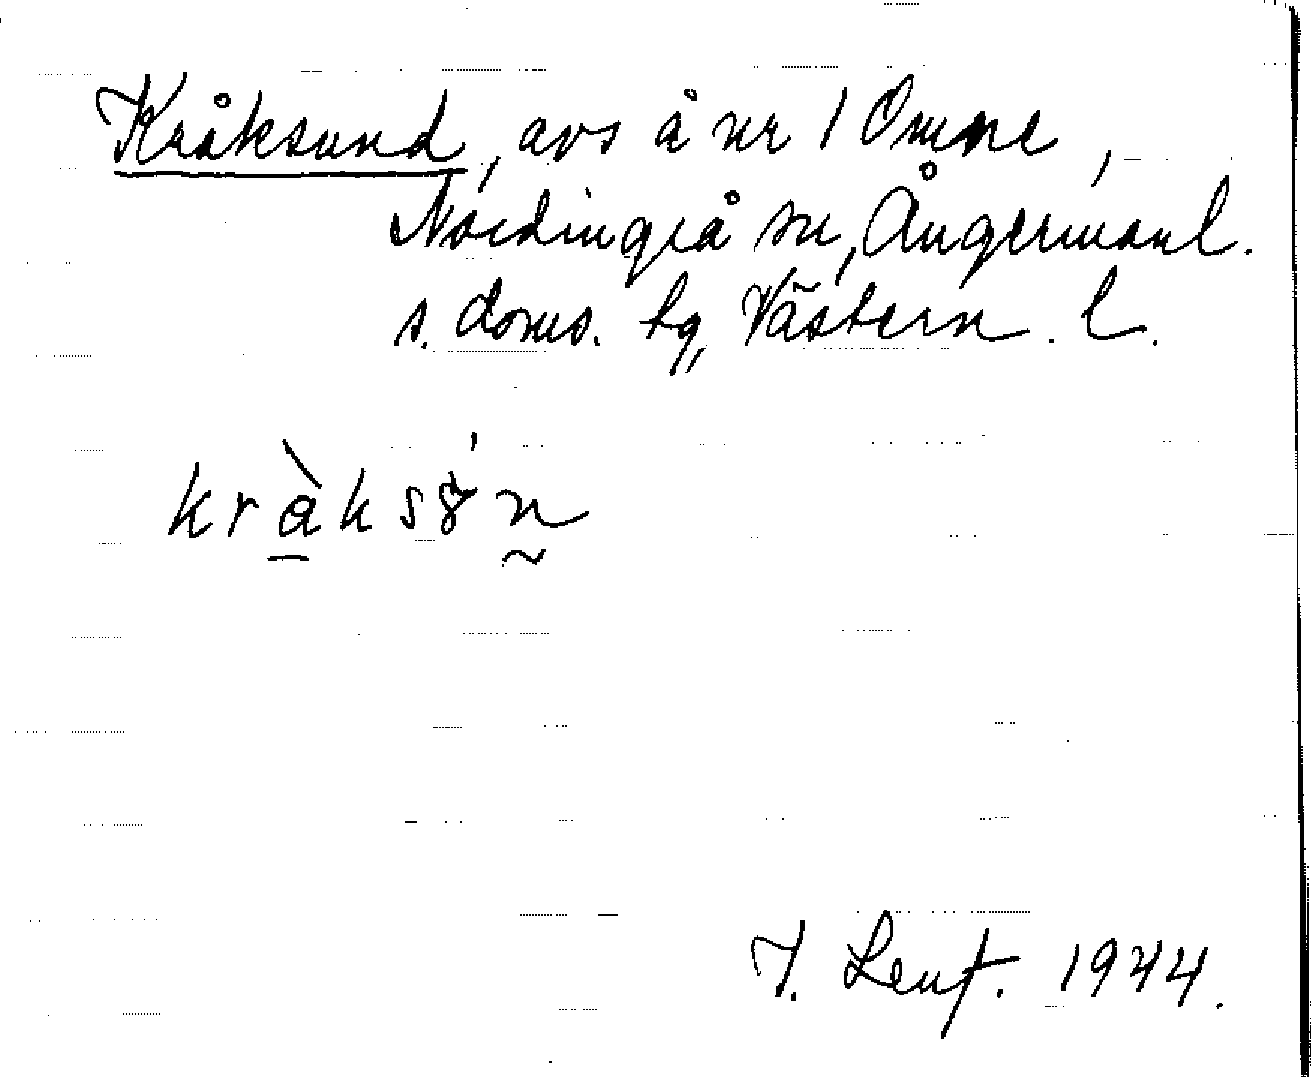 Kråksund, avs å nr 1 Omne,
Nordingrå sn, Ångermanl.
s. doms. tg, Västern. l.
kràksø̀'n
1944.